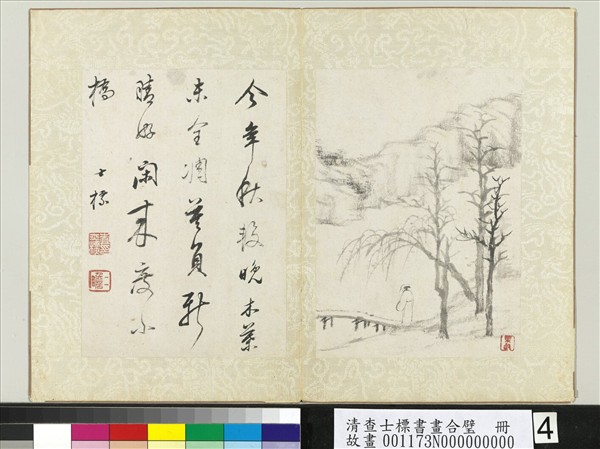 今年秋較晚木葉
未全凋莫負新
晴好閑來度小
橋
士標
清查士標書畫合璧 冊
故畫 001173N000000000
4